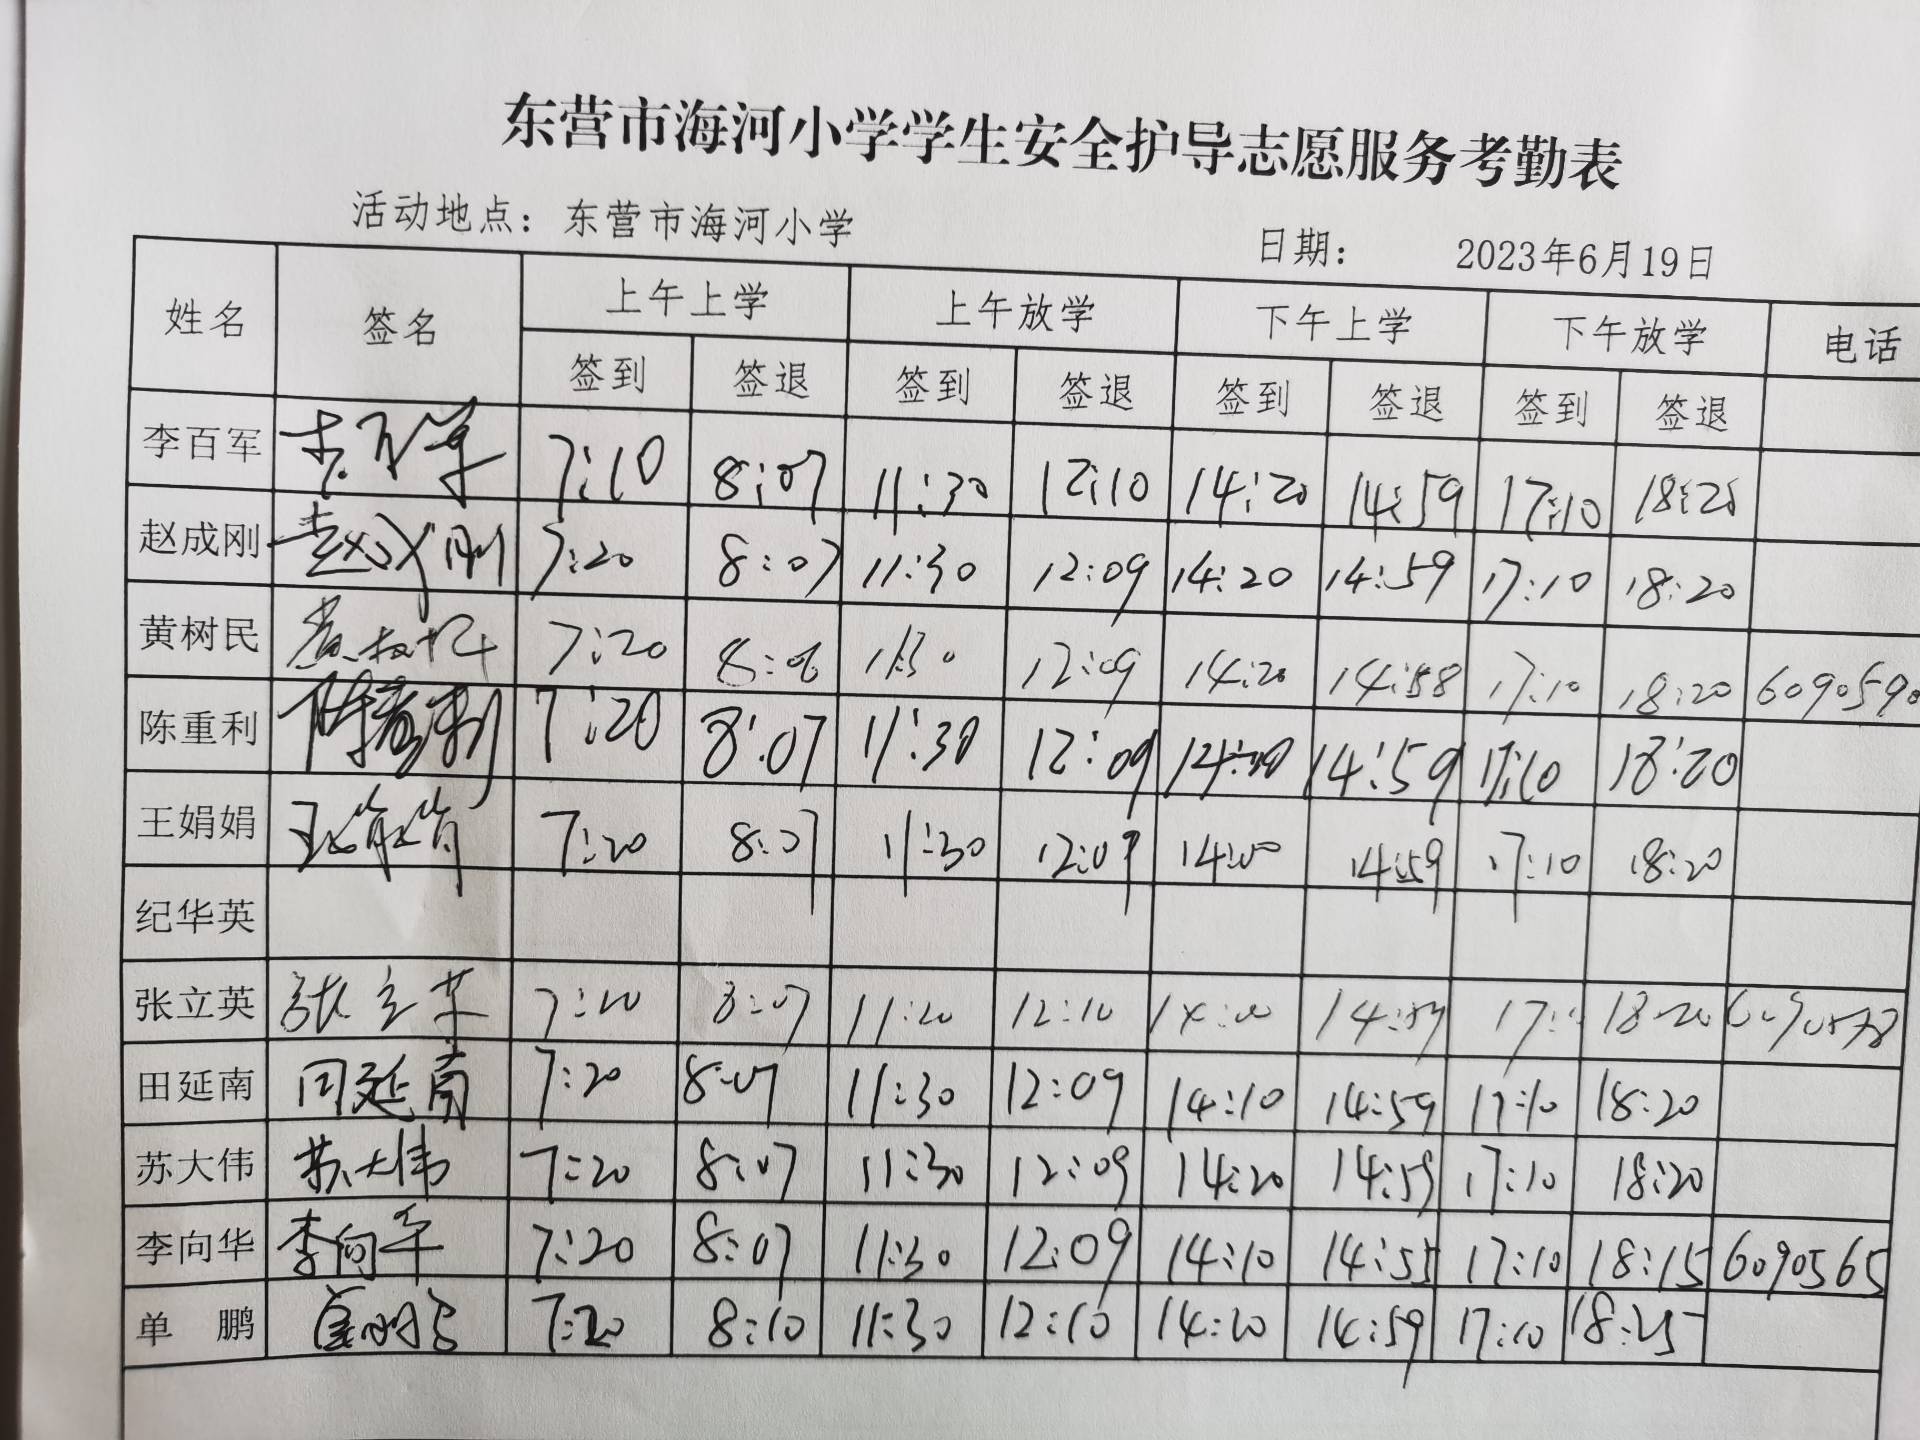 东营市海河小学学生安全护导志愿服务考勤表
活动地点： 东营市海河小学 日期： 2023年6月19日
姓名 签名 上午上学 上午放学 下午上学 下午放学 电话
签到 签退 签到 签退 签到 签退 签到 签退
李百军 李百军 7:10 8:07 11:30 12:10 14:20 14:59 17:10 18:25
赵成刚 赵成刚 7:20 8:07 11:30 12:09 14:20 14:59 17:10 18:20
黄树民 黄树民 7:20 8:06 11:30 12:09 14:20 14:58 17:10 18:20 6090590
陈重利 陈重利 7:20 8:07 11:30 12:09 14:59 17:10 18:20
王娟娟 王娟娟 7:20 8:07 11:30 12:09 14:20 14:59 17:10 18:20
纪华英
张立英 张立英 7:20 8:07 11:20 12:10 14:20 14:59 18:20
田延南 田延南 7:20 8:07 11:30 12:09 14:10 14:59 17:10 18:20
苏大伟 苏大伟 7:20 8:07 11:30 12:09 14:20 14:59 17:10 18:20
李向华 李向华 7:20 8:07 11:30 12:09 14:10 14:55 17:10 18:15 6090565
单 鹏 单鹏 7:20 8:10 11:30 12:10 14:20 14:59 17:10 18:25